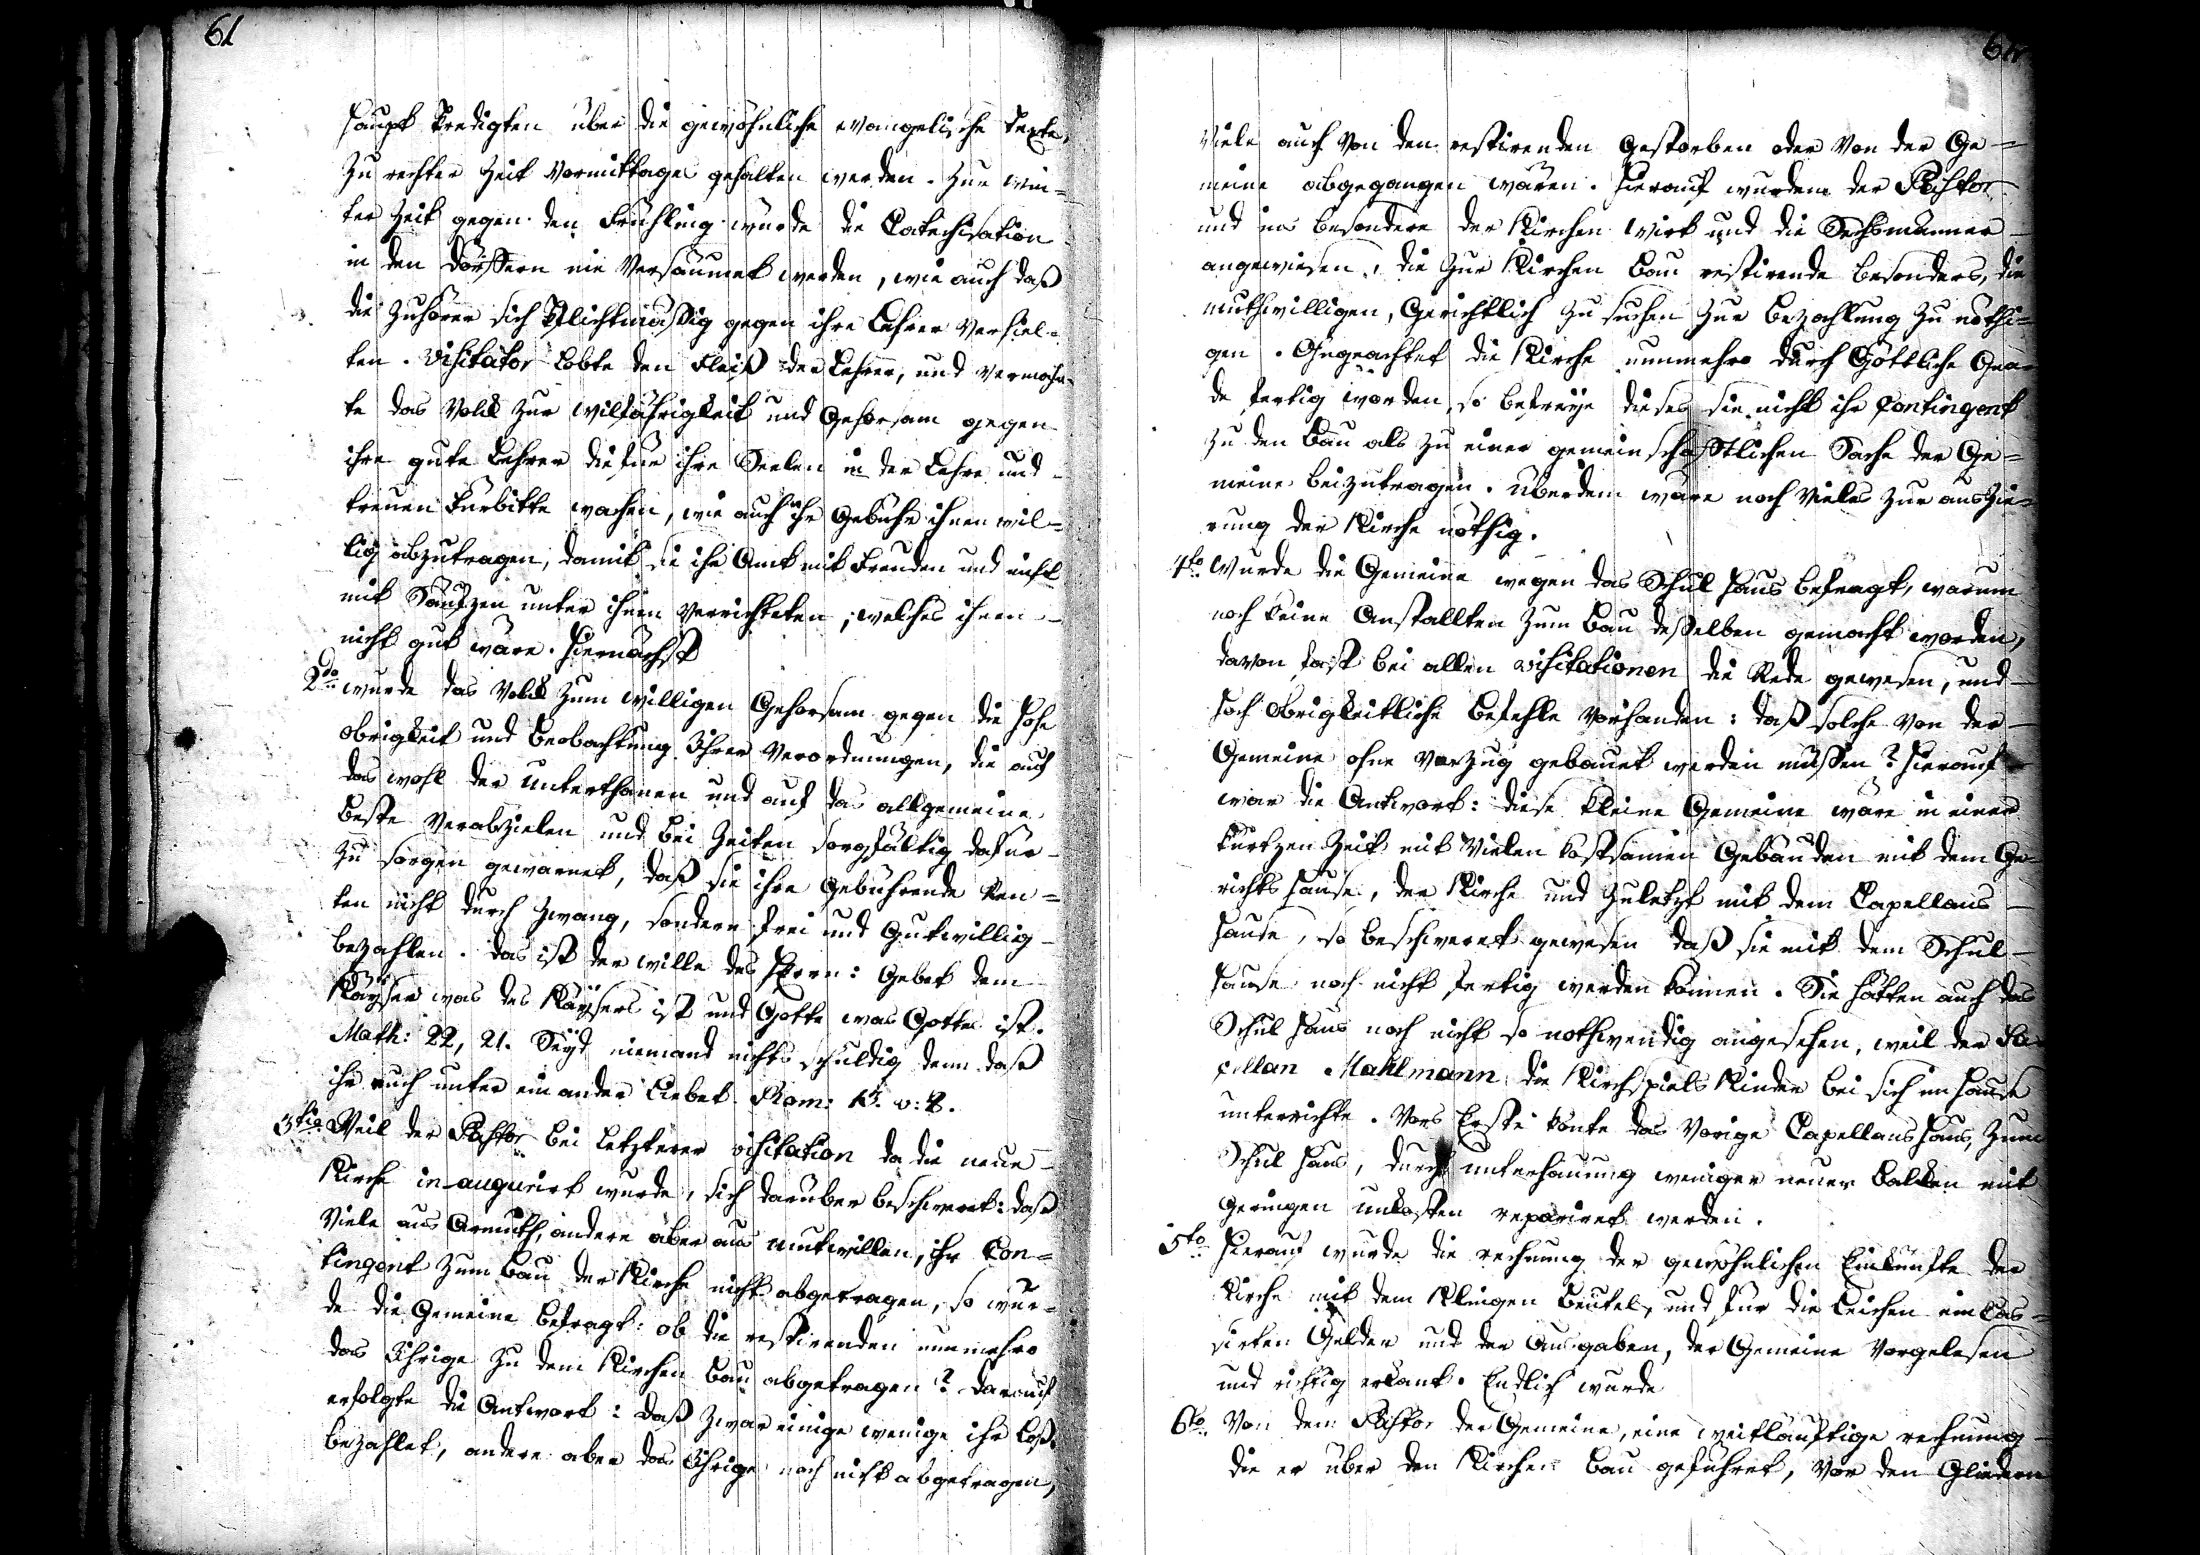 61
Haupt Predigten über die gewöhnliche evangelische Texte,
zu rechter Zeit Vormittages gehalten werden. Zur Win=
ter Zeit gegen den Frühling würde die Catechisation
in den Dörffern nie Versäumet werden, wie auch daß
die Zuhörer sich Pflichtmäßig gegen ihre Lehrer Verhiel=
ten. Visitator Lobte den Fleiß der Lehrer, und Vermahn=
te das Volk zur Wilfährigkeit und Gehorsam gegen
ihre gute Lehrer die für ihre Seelen in der Lehre und
treuen Fürbitte wachen, wie auch ihr Gebühr ihnen wil=
lig abzutragen, damit sie ihr Amt mit Freuden und nicht
mit Säufzen unter ihnen Verrichteten, welches ihnen
nicht gut wäre. Hiernächst
2do wurde das Volk zum willigen Gehorsam gegen die Hohe
Obrigkeit und Beobachtung Ihrer Verordnungen, die auf
das wohl der Unterthanen und auf das allgemeine
Beste Verabzielen und bei Zeiten sorgfältig dafür
zu sorgen gewarnet, daß sie ihre Gebührende Ren=
ten nicht durch Zwang, sondern frei und Gutwillig
bezahlen. Das ist der wille des Herrn: Gebet dem
Käyser was des Käysers ist und Gotte was Gottes ist.
Math: 22, 21. Seyd niemand nichts schuldig denn daß
ihr euch unter einander Liebet. Rom: 13. v: 8.
3tio Weil der Pastor bei Letzterer visitation da die neue
Kirche inaugurirt wurde, sich darüber beschweret: daß
Viele aus Armuth, andere aber aus mutwillen, ihr Con=
tingent zum Bau der Kirche nicht abgetragen, so wur=
de die Gemeine befragt: ob die restirenden nunmehro
das Ihrige zu dem Kirchen Bau abgetragen? Darauf
erfolgte die Antwort: Daß zwar einige wenige ihr Loß
bezahlet, andere aber das Ihrige noch nicht abgetragen,
Viele auch Von den restirenden Gestorben oder Von der Ge=
meine abgegangen wären. Hierauf wurden der Pastor
und ins besondere der Kirchen Wirt und die Sechsmänner
angewiesen, die zur Kirchen Bau restirende besonders, die
muthwilligen, Gerichtlich zu suchen zur Bezahlung zu nöthi=
gen. Ongeachtet die Kirche nunmehro durch Göttliche Gna=
de fertig worden, so befreye dieses sie nicht ihr Contingent
zu den Bau als zu einer gemeinschafftlichen Sache der Ge=
meine beizutragen. Überdem wäre noch Vieles zur Auszie=
rung der Kirche nöthig.
4to Wurde die Gemeine wegen das Schul Haus befragt, warum
noch keine Anstallten zum Bau deßelben gemacht worden,
davon fast bei allen visitationen die Rede gewesen, und
Hoch Obrigkeitliche Befehle Vorhanden: daß solche Von der
Gemeine ohne Verzug gebauet werden müßen? Hierauf
war die Antwort: Diese kleine Gemeine wäre in einer
kurtzen Zeit mit Vielen kostsamen Gebäuden mit dem Ge=
richts Hause, der Kirche und zuletzt mit dem Capellans
Hause, so beschweret gewesen daß sie mit dem Schul
Hause noch nicht fertig werden können. Sie hätten auch das
Schul Haus noch nicht so nothwendig angesehen, weil der Ca=
pellan Mahlmann die Kirchspiels Kinder bei sich im Hause
unterrichte. Vors Erste könte das Vorige Capellans Haus, zum
Schul Haus, durch unterhauung weniger neuer Balken mit
Geringen unkosten repariret werden.
5to Hierauf wurde die rechnung der gewöhnlichen Einkünfte der
Kirche mit dem Klingen Beutel, und für die Leichen ein Cas=
sirten Gelder und der Ausgaben, der Gemeine Vorgelesen
und richtig erkant. Endlich wurde
6to Von dem Pastor der Gemeine, eine weitläuftige rechnung
die er über den Kirchen Bau geführet, Von den Gliedern